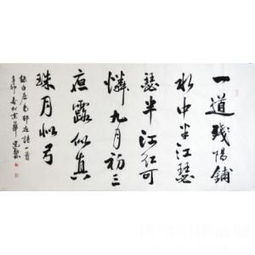 一道殘陽鋪
水中半江瑟
瑟半江红可
憐九月初三
夜露似真
珠月似弓
錄白居易詩一首
辛卯